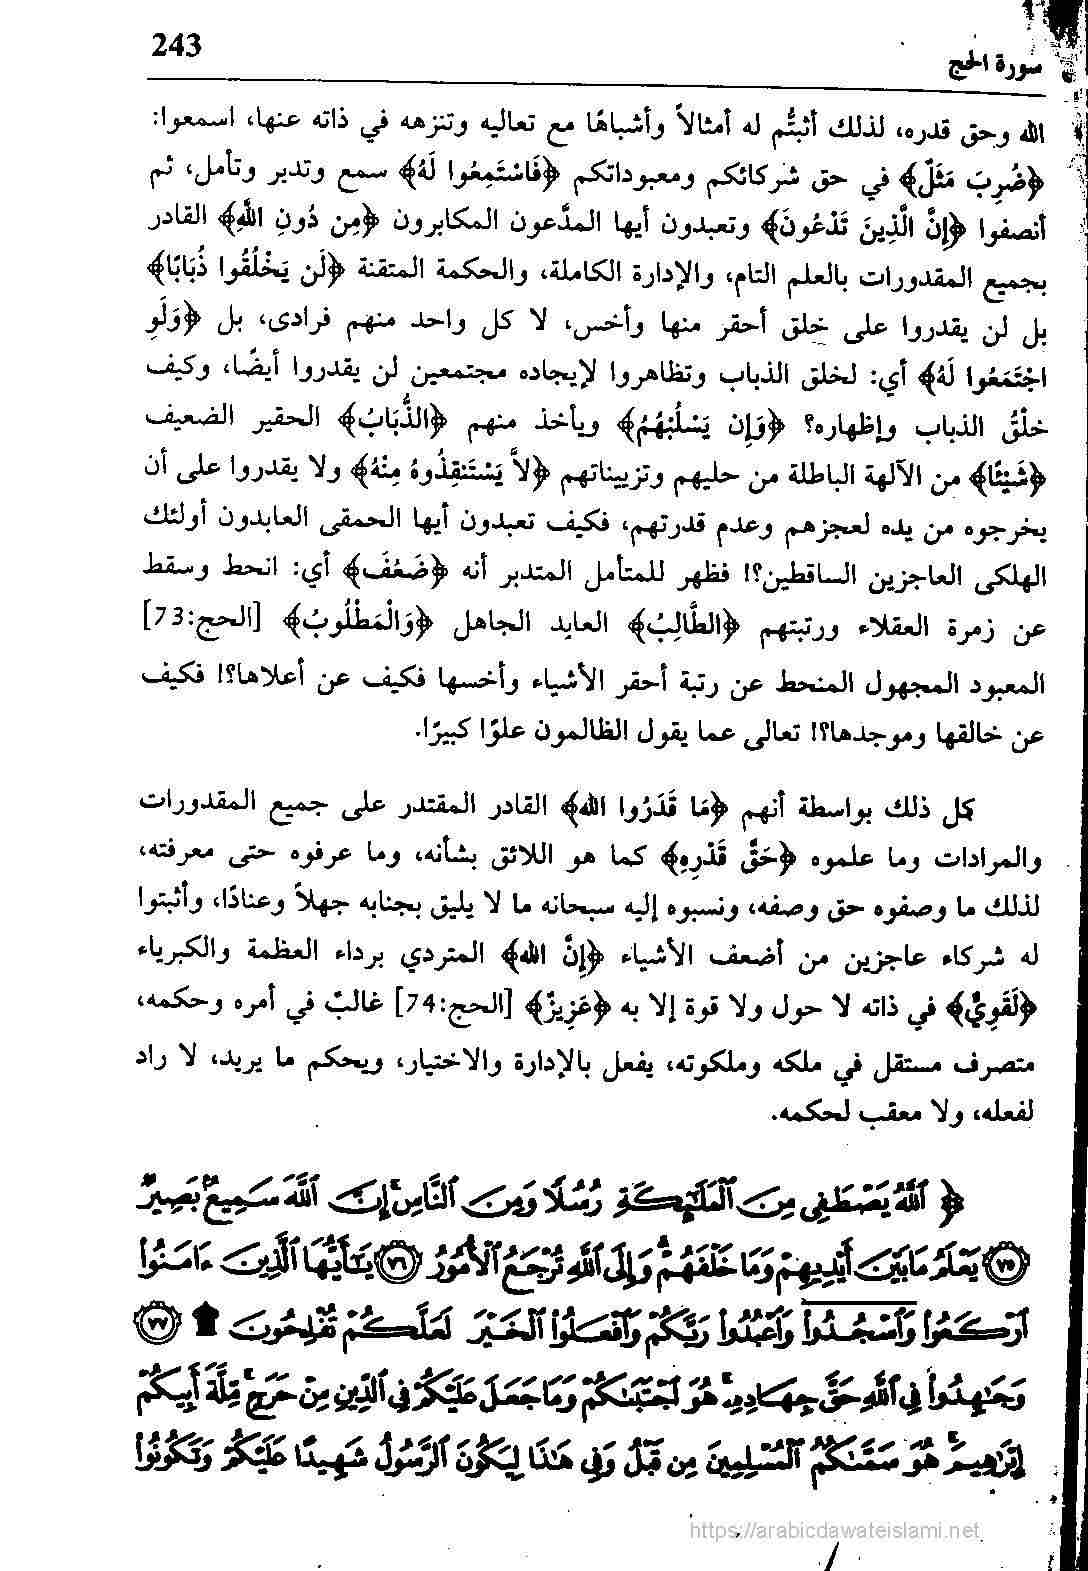 سورة الحج
243
الله وحق قدره، لذلك أثبتُّم له أمثالاً وأشباهًا مع تعاليه وتنزهه في ذاته عنها، اسمعوا:
﴿ضُرِبَ مَثَلٌ﴾ في حق شركائكم ومعبوداتكم ﴿فَاسْتَمِعُوا لَهُ﴾ سمع وتدبر وتأمل، ثم
أنصفوا ﴿إِنَّ الَّذِينَ تَدْعُونَ﴾ وتعبدون أيها المدَّعون المكابرون ﴿مِن دُونِ اللَّهِ﴾ القادر
بجميع المقدورات بالعلم التام، والإدارة الكاملة، والحكمة المتقنة ﴿لَن يَخْلُقُوا ذُبَابًا﴾
بل لن يقدروا على خلق أحقر منها وأخس، لا كل واحد منهم فرادى، بل ﴿وَلَوِ
اجْتَمَعُوا لَهُ﴾ أي: لخلق الذباب وتظاهروا لإيجاده مجتمعين لن يقدروا أيضًا، وكيف
خلْقُ الذباب وإظهاره؟ ﴿وَإِن يَسْلُبْهُمُ﴾ ويأخذ منهم ﴿الذُّبَابُ﴾ الحقير الضعيف
﴿شَيْئًا﴾ من الآلهة الباطلة من حليهم وتزييناتهم ﴿لاَّ يَسْتَنقِذُوهُ مِنْهُ﴾ ولا يقدروا على أن
يخرجوه من يده لعجزهم وعدم قدرتهم، فكيف تعبدون أيها الحمقى العابدون أولئك
الهلكى العاجزين الساقطين؟! فظهر للمتأمل المتدبر أنه ﴿ضَعُفَ﴾ أي: انحط وسقط
عن زمرة العقلاء ورتبتهم ﴿الطَّالِبُ﴾ العابد الجاهل ﴿وَالْمَطْلُوبُ﴾ [الحج:73]
المعبود المجهول المنحط عن رتبة أحقر الأشياء وأخسها فكيف عن أعلاها؟! فكيف
عن خالقها وموجدها؟! تعالى عما يقول الظالمون علوًا كبيرًا.
كل ذلك بواسطة أنهم ﴿مَا قَدَرُوا اللهَ﴾ القادر المقتدر على جميع المقدورات
والمرادات وما علموه ﴿حَقَّ قَدْرِهِ﴾ كما هو اللائق بشأنه، وما عرفوه حتى معرفته،
لذلك ما وصفوه حق وصفه، ونسبوه إليه سبحانه ما لا يليق بجنابه جهلاً وعنادًا، وأثبتوا
له شركاء عاجزين من أضعف الأشياء ﴿إِنَّ اللهَ﴾ المتردي برداء العظمة والكبرياء
﴿لَقَوِيٌّ﴾ في ذاته لا حول ولا قوة إلا به ﴿عَزِيزٌ﴾ [الحج:74] غالبٌ في أمره وحكمه،
متصرف مستقل في ملكه وملكوته، يفعل بالإدارة والاختيار، ويحكم ما يريد، لا راد
لفعله، ولا معقب لحكمه.
﴿ ٱللَّهُ يَصْطَفِى مِنَ ٱلْمَلَٰٓئِكَةِ رُسُلًا وَمِنَ ٱلنَّاسِ ۚ إِنَّ ٱللَّهَ سَمِيعٌۢ بَصِيرٌ
﴿٧٥﴾ يَعْلَمُ مَا بَيْنَ أَيْدِيهِمْ وَمَا خَلْفَهُمْ ۗ وَإِلَى ٱللَّهِ تُرْجَعُ ٱلْأُمُورُ ﴿٧٦﴾ يَٰٓأَيُّهَا ٱلَّذِينَ ءَامَنُوا۟
ٱرْكَعُوا۟ وَٱسْجُدُوا۟ وَٱعْبُدُوا۟ رَبَّكُمْ وَٱفْعَلُوا۟ ٱلْخَيْرَ لَعَلَّكُمْ تُفْلِحُونَ ۩ ﴿٧٧﴾
وَجَٰهِدُوا۟ فِى ٱللَّهِ حَقَّ جِهَادِهِۦ ۚ هُوَ ٱجْتَبَىٰكُمْ وَمَا جَعَلَ عَلَيْكُمْ فِى ٱلدِّينِ مِنْ حَرَجٍ ۚ مِّلَّةَ أَبِيكُمْ
إِبْرَٰهِيمَ ۚ هُوَ سَمَّىٰكُمُ ٱلْمُسْلِمِينَ مِن قَبْلُ وَفِى هَٰذَا لِيَكُونَ ٱلرَّسُولُ شَهِيدًا عَلَيْكُمْ وَتَكُونُوا۟
https://arabicdawateislami.net